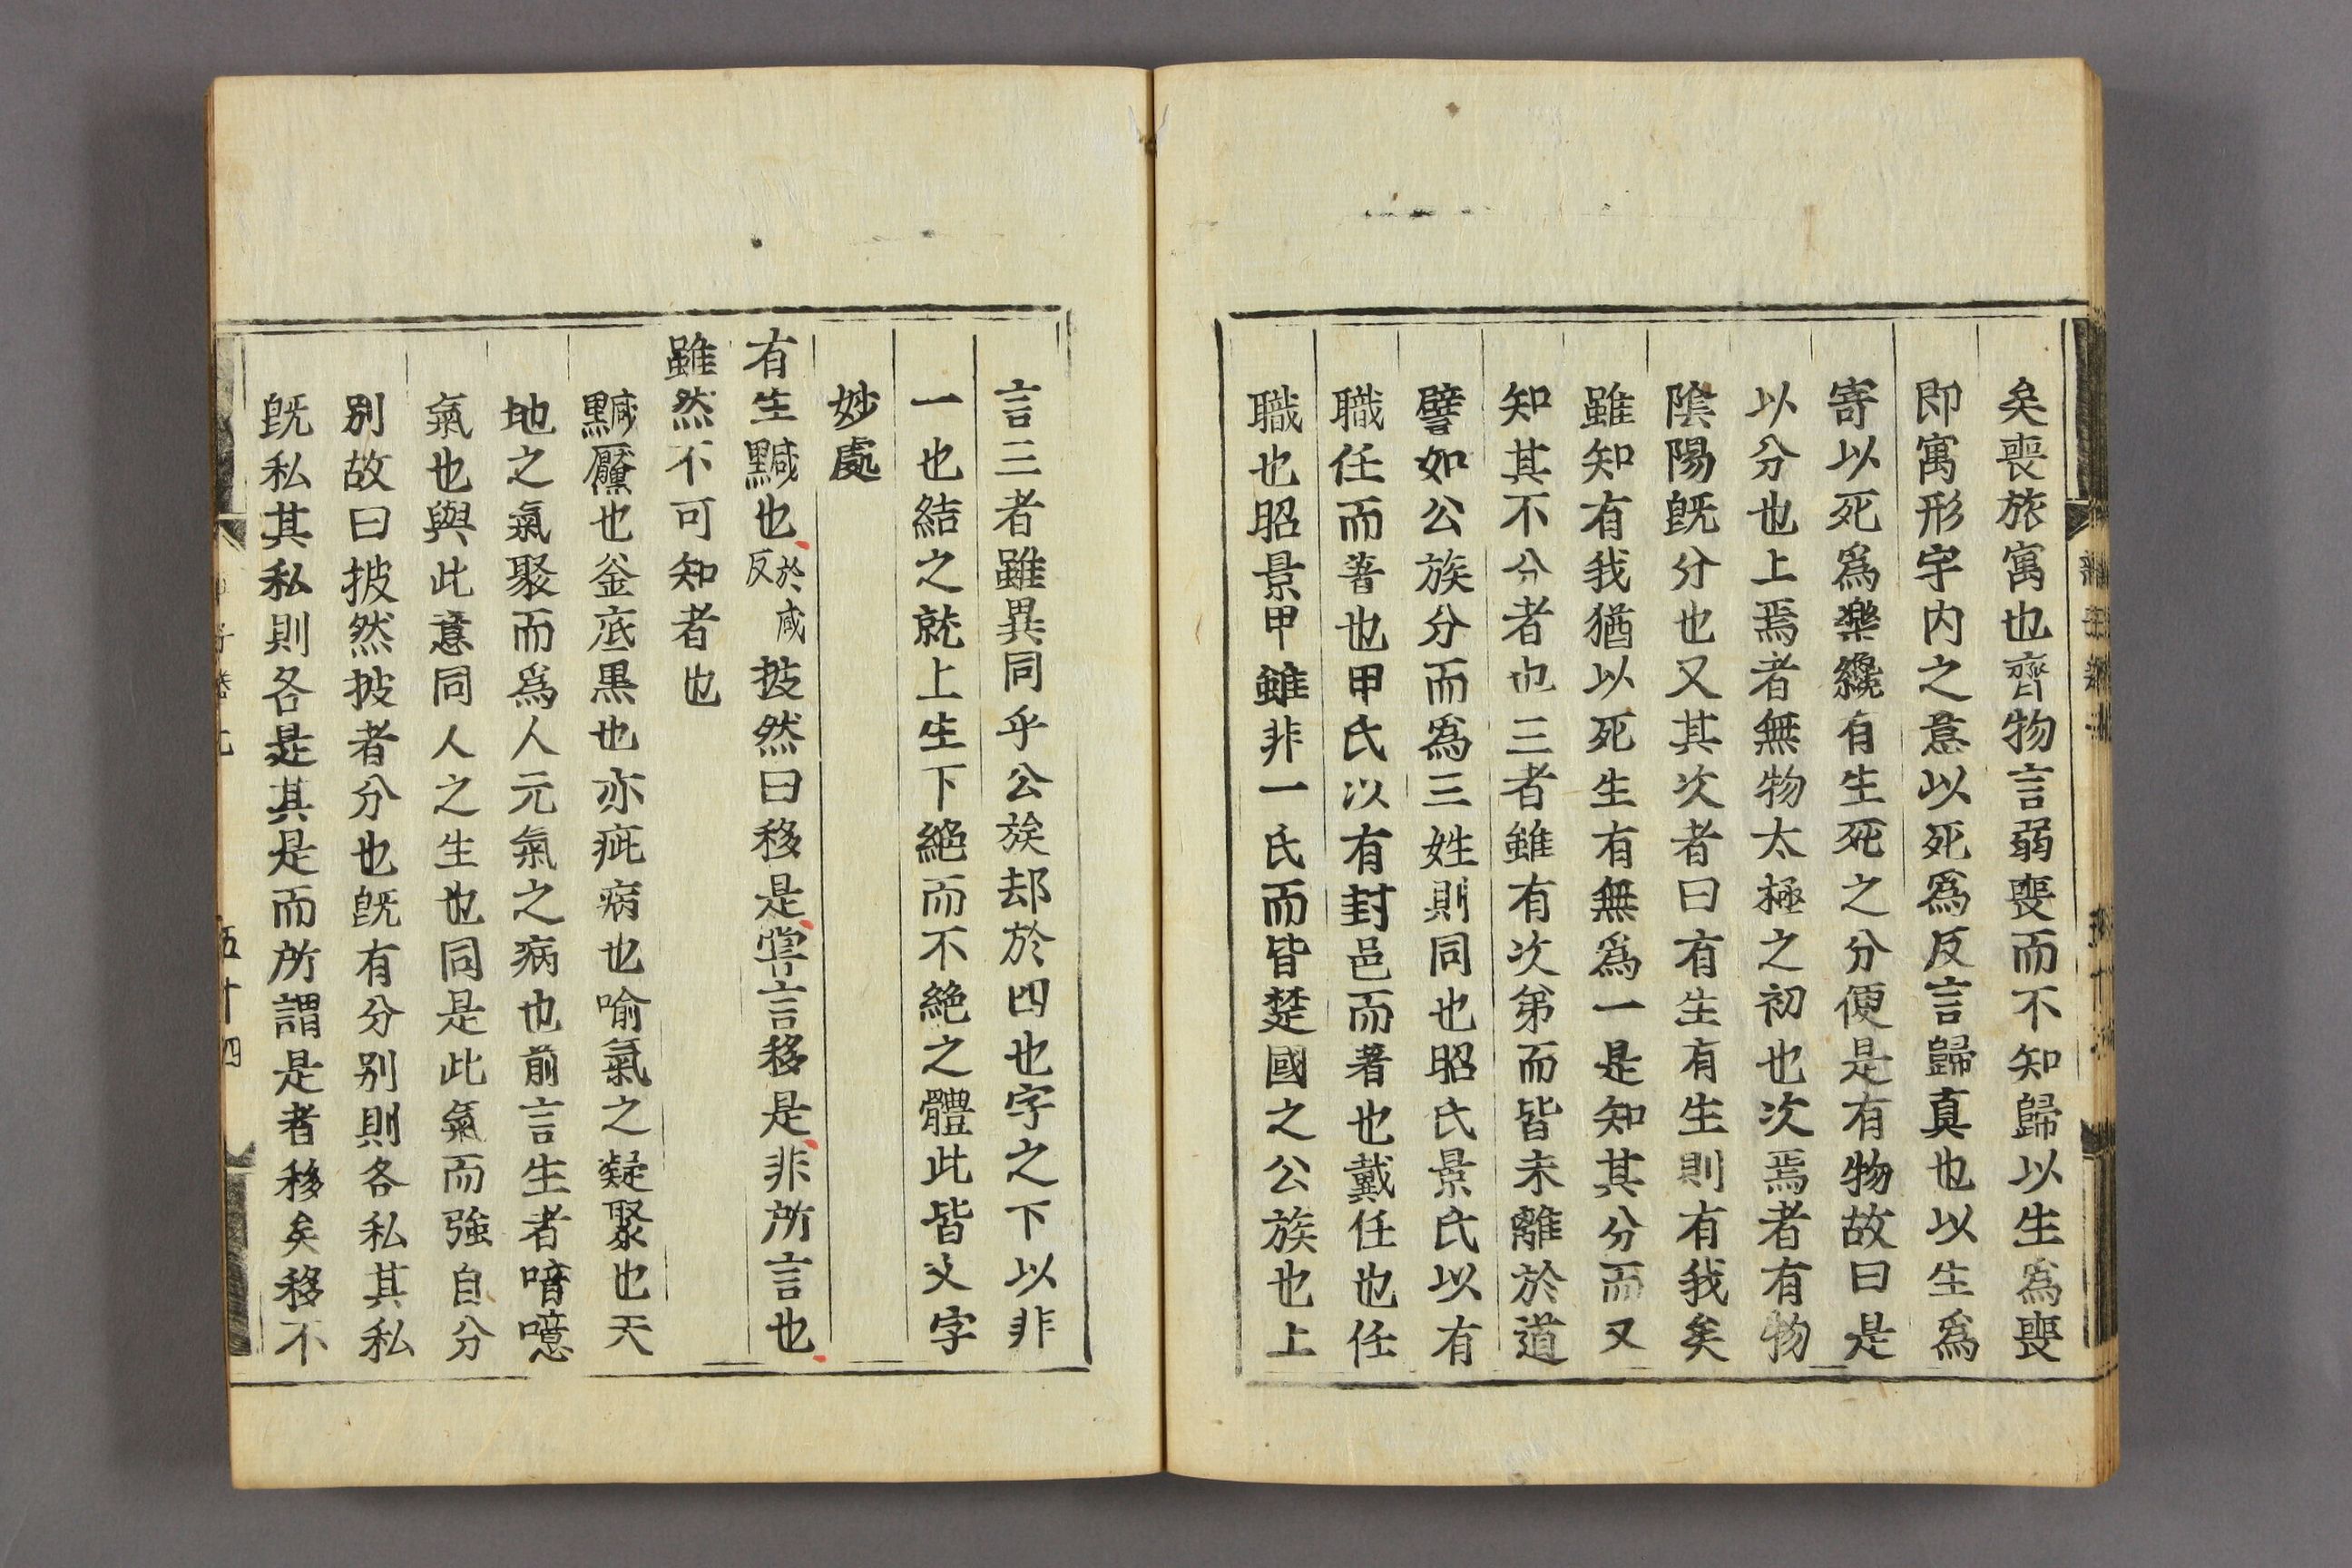 矣喪旅寓也齊物言弱喪而不知歸以生爲喪
即寓形宇内之意以死爲反言歸真也以生爲
寄以死爲樂纔有生死之分便是有物故曰是
以分也上焉者無物太極之初也次焉者有物
陰陽旣分也又其次者曰有生有生則有我矣
雖知有我猶以死生有無爲一是知其分而又
知其不分者也三者雖有次第而皆未離於道
譬如公族分而爲三姓則同也昭氏景氏以有
職任而著也甲氏以有封邑而著也戴任也任
職也昭景甲雖非一氏而皆楚國之公族也上
言三者雖異同乎公族却於四也字之下以非
一也結之就上生下絕而不絕之體此皆文字
妙處
有生黬也於咸反披然曰移是甞言移是非所言也
雖然不可知者也
黬黶也釜底黒也亦疵病也喻氣之凝聚也天
地之氣聚而爲人元氣之病也前言生者喑噫
氣也與此意同人之生也同是此氣而強自分
別故曰披然披者分也旣有分別則各私其私
旣私其私則各是其是而所謂是者移矣移不
五十四